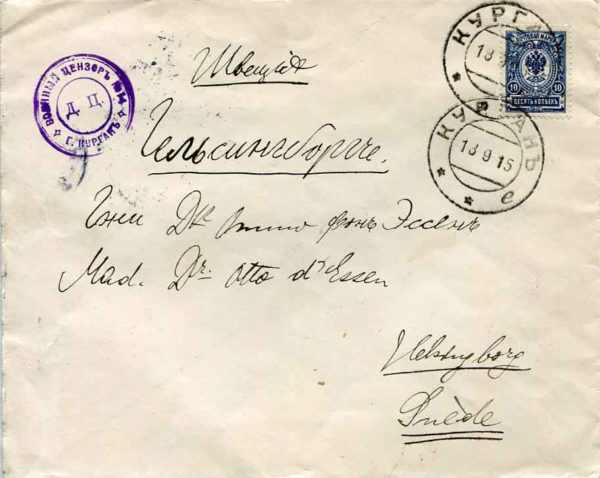 ВОЕННЫЙ ЦЕНЗОРЪ №14
Д. Ц.
Г. КУРГАНЪ
КУРГАНЪ
18 9 15
ПОЧТОВАЯ МАРКА
10 10
ДЕСЯТЬ КОПѢЕКЪ
КУРГАНЪ
18 9 15
е
Швеція
Гельсингборгъ.
Гжи Дк Отто фонъ Эссенъ
Mad. Dr. Otto d'Essen
Helsingborg
Suède